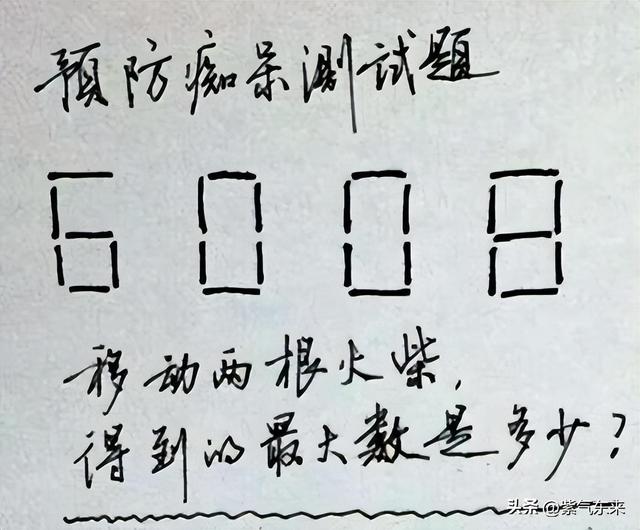 预防痴呆测试题
6008
移动两根火柴,
得到的最大数是多少?
头条@紫气东来